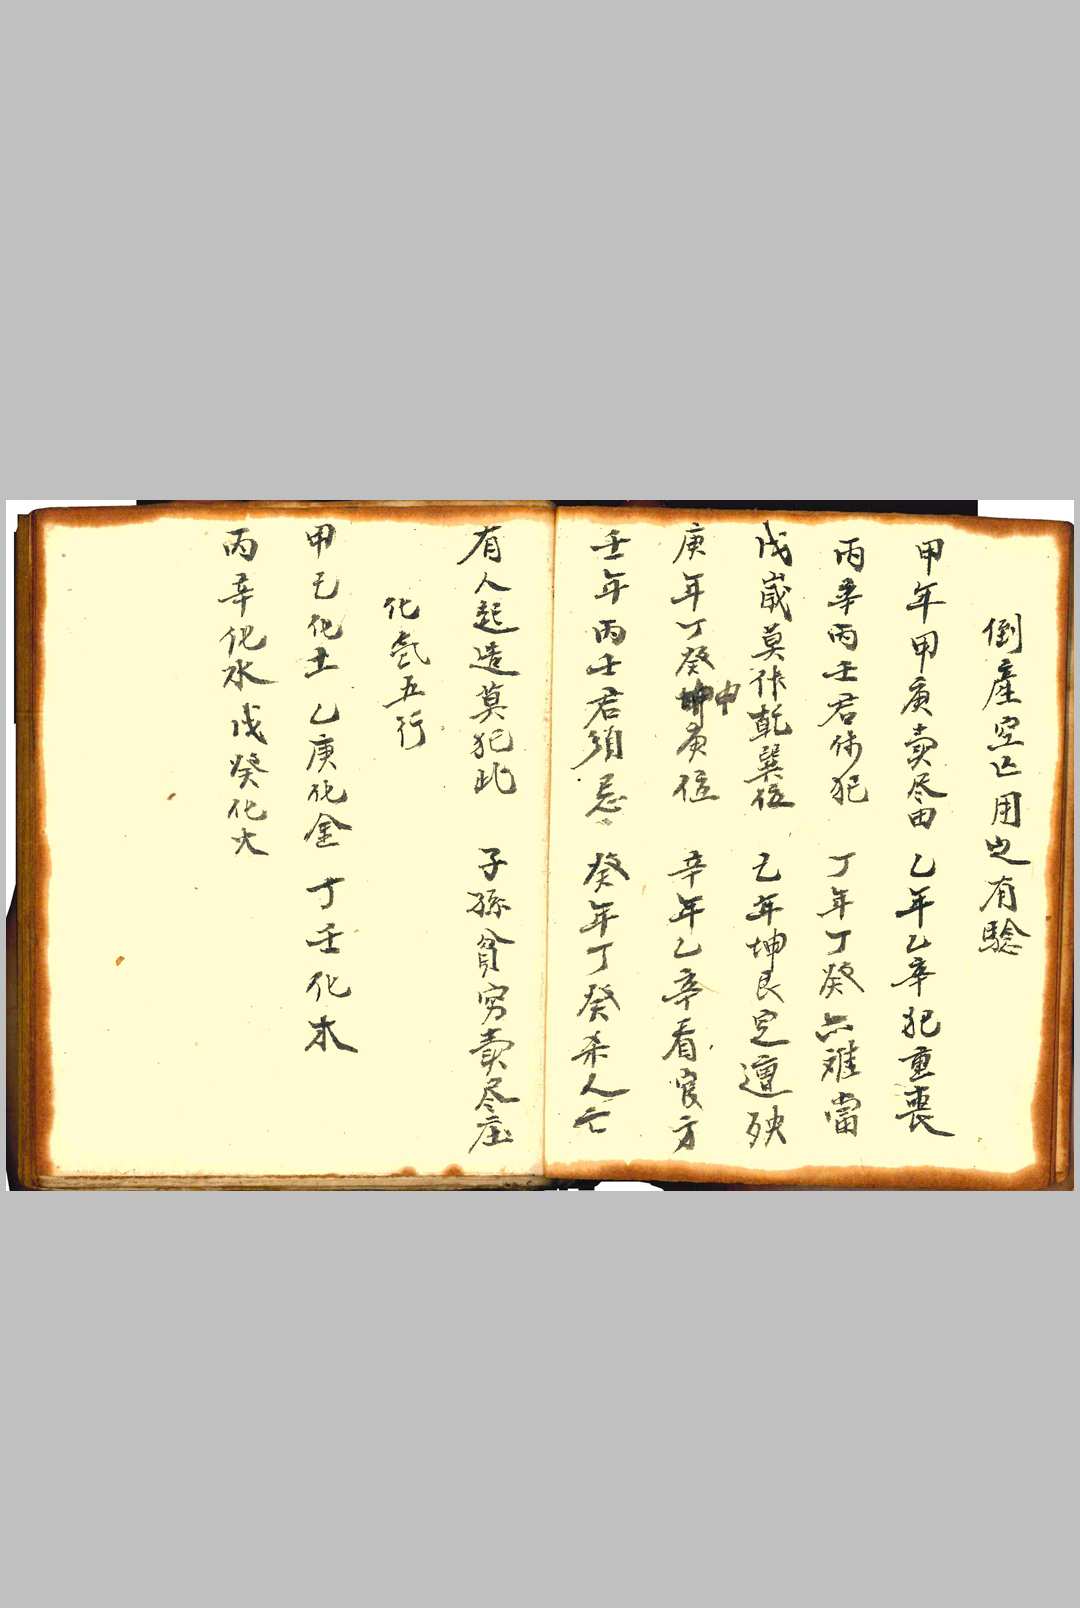 倒產空亡用之有驗
甲年甲庚賣尽田 乙年乙辛犯重喪
丙辛丙壬君休犯 丁年丁癸六难當
戊歲莫作乾巽位 己年坤艮定遭殃
庚年丁癸申庚位 辛年乙辛看官方
壬年丙壬君須忌 癸年丁癸杀人亡
有人起造莫犯此 子孫貧穷賣尽庄
化氣五行
甲己化土 乙庚化金 丁壬化木
丙辛化水 戊癸化火